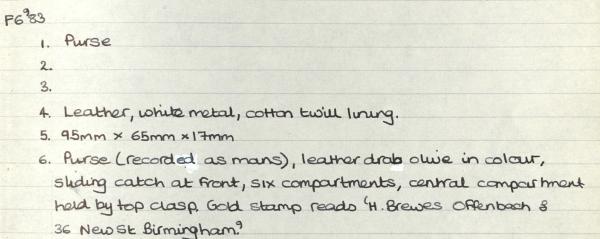 F6'83
1. Purse
2.
3.
4. Leather, white metal, cotton twill lining.
5. 95mm × 65mm × 17mm
6. Purse (recorded as mans), leather drab olive in colour,
sliding catch at front, six compartments, central compartment
held by top clasp. Gold stamp reads 'H. Brewes Offenbach &
36 New St Birmingham'